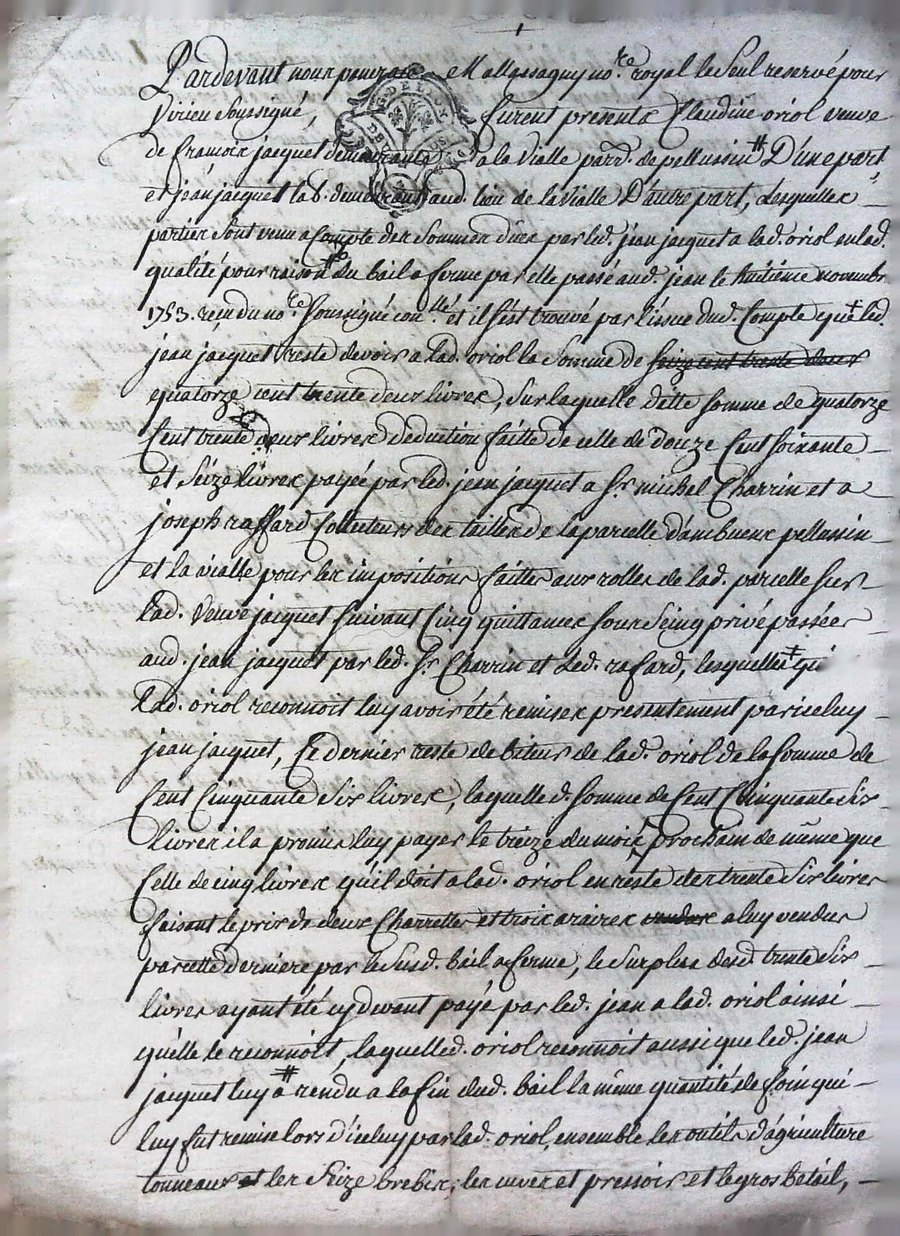 Pardevant nous pierre M allassagny no.re royal le seul reservé pour
Virieu soussigné, furent presents Claudine oriol veuve
de francois jacquet demeurante a la Vialle parr. de pellussin # D'une part
et jean jacquet lab. demeurant aud. lieu de la Vialle D'autre part, Lesquelles
parties sont venu a Compte des sommes dues par led. jean jacquet a lad. oriol en lad.
qualité pour raison du bail a ferme par elle passé aud. jean le huitieme novembre
1753. rendu no.re soussigné con.llé et il s'est trouvé par l'issue dud. Compte que + led.
jean jacquet reste devoir a lad. oriol la somme de seize cent trente deux
quatorze cent trente deux livres, sur laquelle ditte somme de quatorze
Cent trente deux livres deduction faitte de celle de douze Cent soixante
et seize livres payée par led. jean jacquet a Sr. michel Charrin et a
joseph raffard Collecteurs des tailles de la parcelle d'ambueux pellussin
et la vialle pour les impositions faittes aux rolles de lad. parcelle sur
Lad. Veuve jacquet suivant Cinq quittances sous seing privé passées
aud. jean jacquet par led. Sr. Charrin et Led. rafard, lesquelles + qui
Lad. oriol reconnoit luy avoir été remises presentement par iceluy
jean jacquet, Ce dernier reste debiteur de lad. oriol de la somme de
Cent Cinquante six livres, laquelle d. somme de Cent Cinquante six
livres il a promis luy payer le treize du mois prochain de même que
Celle de cinq livres qu'il doit a lad. oriol en reste des trente six livres
faisant le prix de deux Charrettes et trois araires vendus a luy vendus
par cette derniere par le susd. bail a ferme, le surplus desd. trente six
livres ayant été cy devant payé par led. jean a lad. oriol ainsi
qu'elle le reconnoit, laquelle d. oriol reconnoit aussi que led. jean
jacquet luy # a rendu a la fin dud. bail la même quantité de foin qui
luy fut remise lors d'iceluy par lad. oriol, ensemble les outils d'agriculture
tonneaux et les seize brebis, les cuves et pressoir et le gros betail,